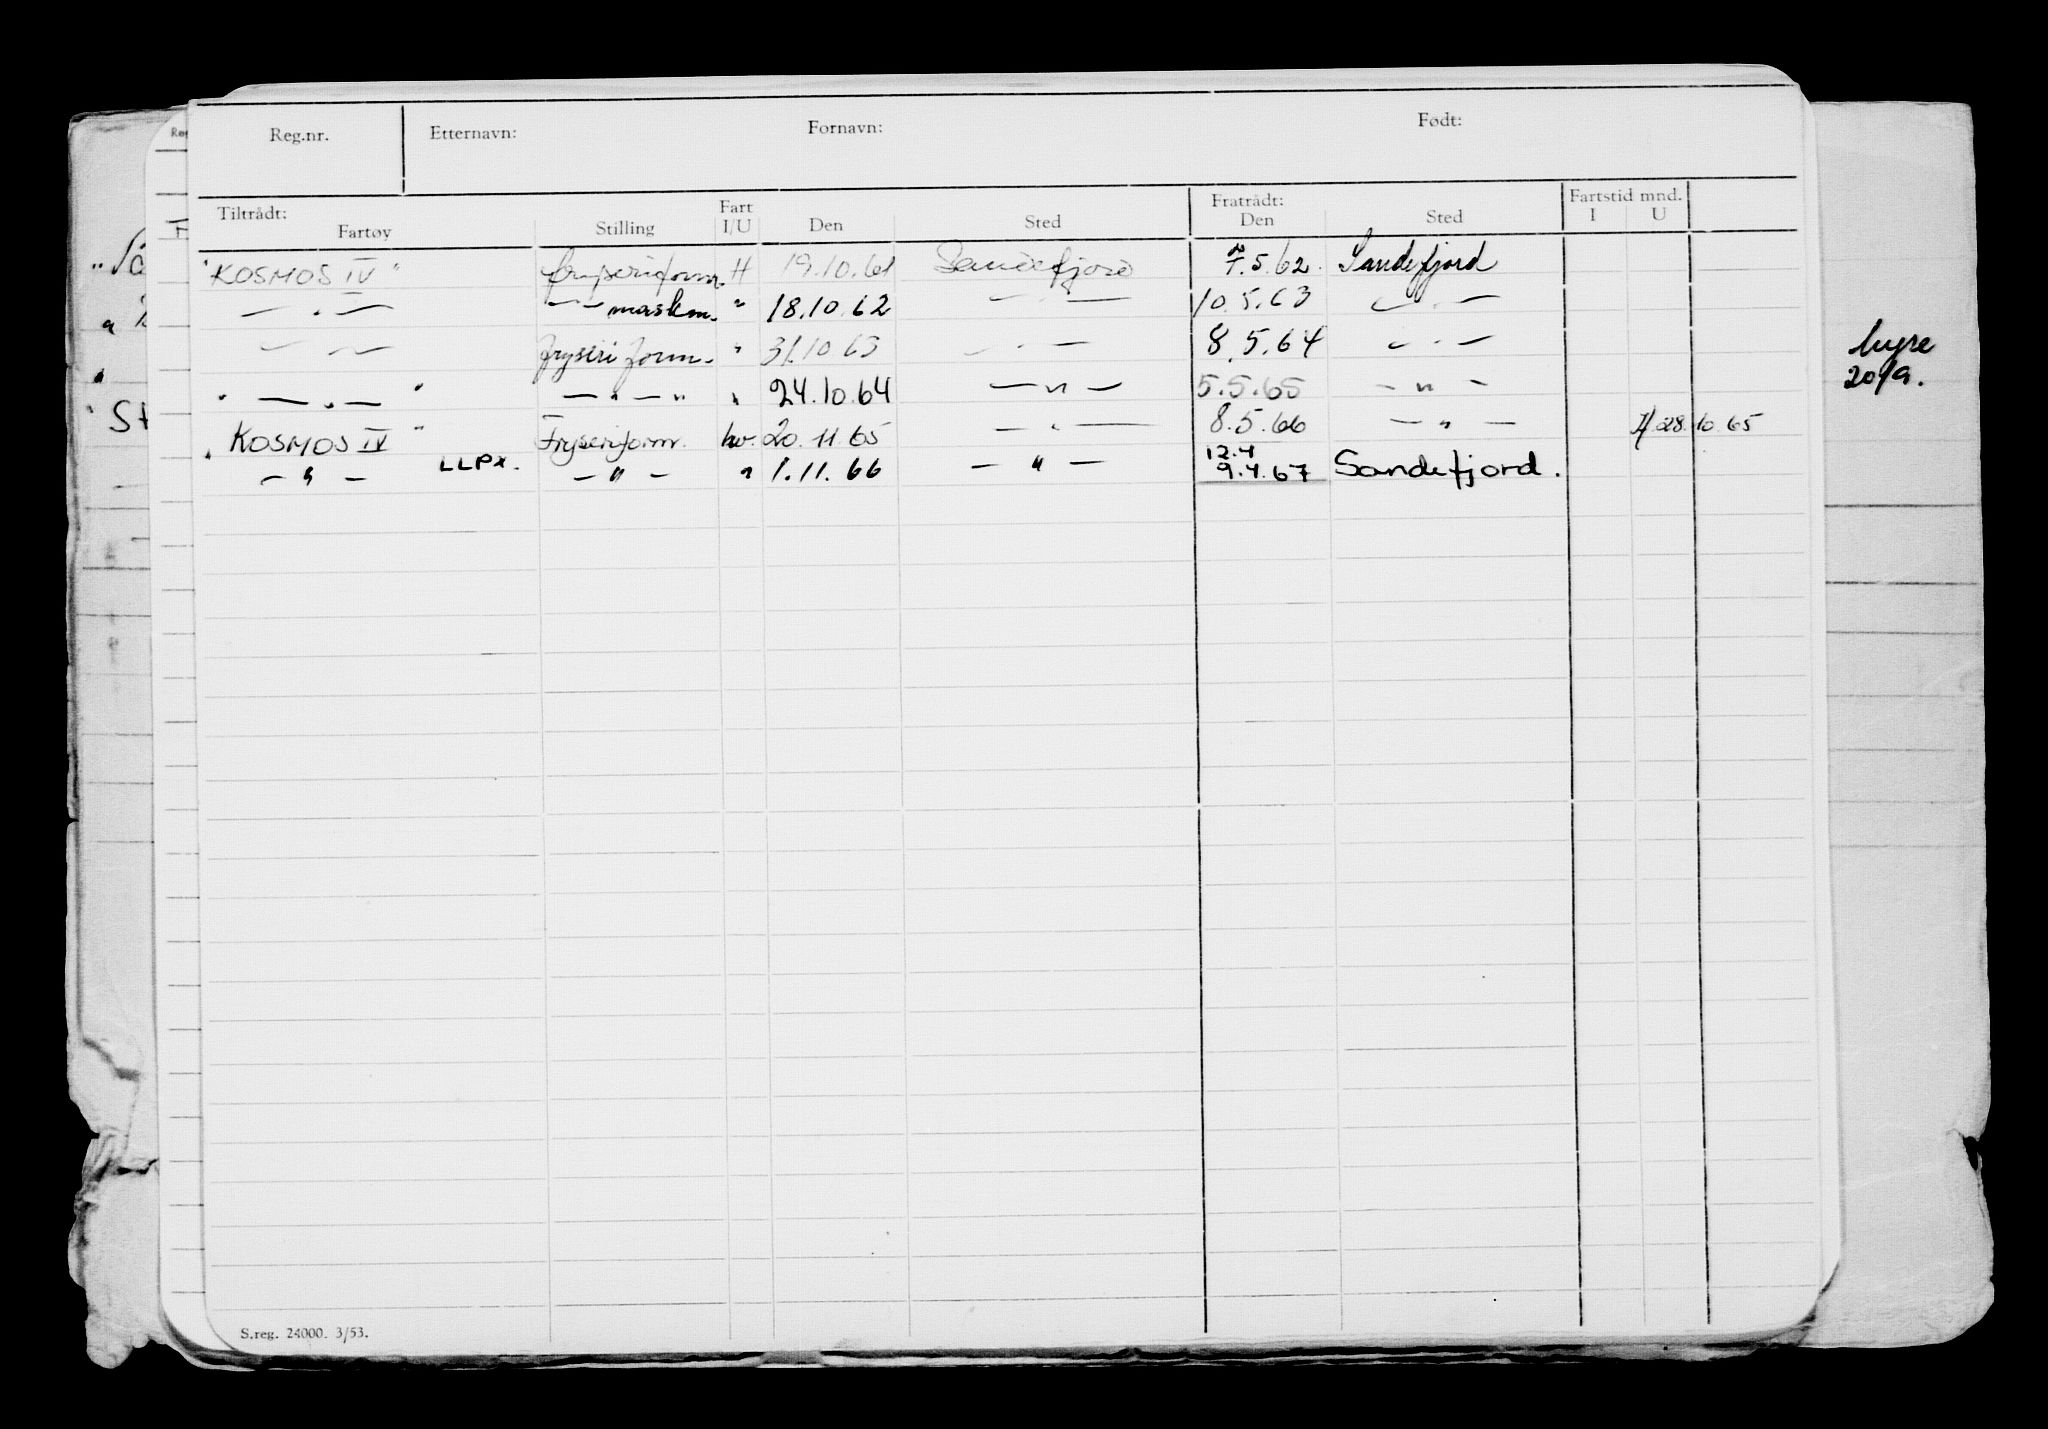 Reg.nr. Etternavn: Fornavn: Født:
Tiltrådt: Fratrådt: Fartstid mnd.
Fartøy Stilling Fart I/U Den Sted Den Sted I U
"KOSMOS IV" fryseriform. H 19.10.61 Sandefjord 7.5.62. Sandefjord
— " — — " — maskm. " 18.10.62 — " — 10.5.63 — " —
— " — fryseri form. " 31.10 63 — " — 8.5.64 — " —
" — " — " — " — " " 24.10.64 — " — 5.5.65 — " —
"KOSMOS IV" Fryseriform. hv. 20.11.65 — " — 8.5.66 — " — 28.10.65
— " — LLPX. — " — " 1.11.66 — " — 12.4 9.4.67 Sandefjord.
hyre
20/9.
S.reg. 24000. 3/53.